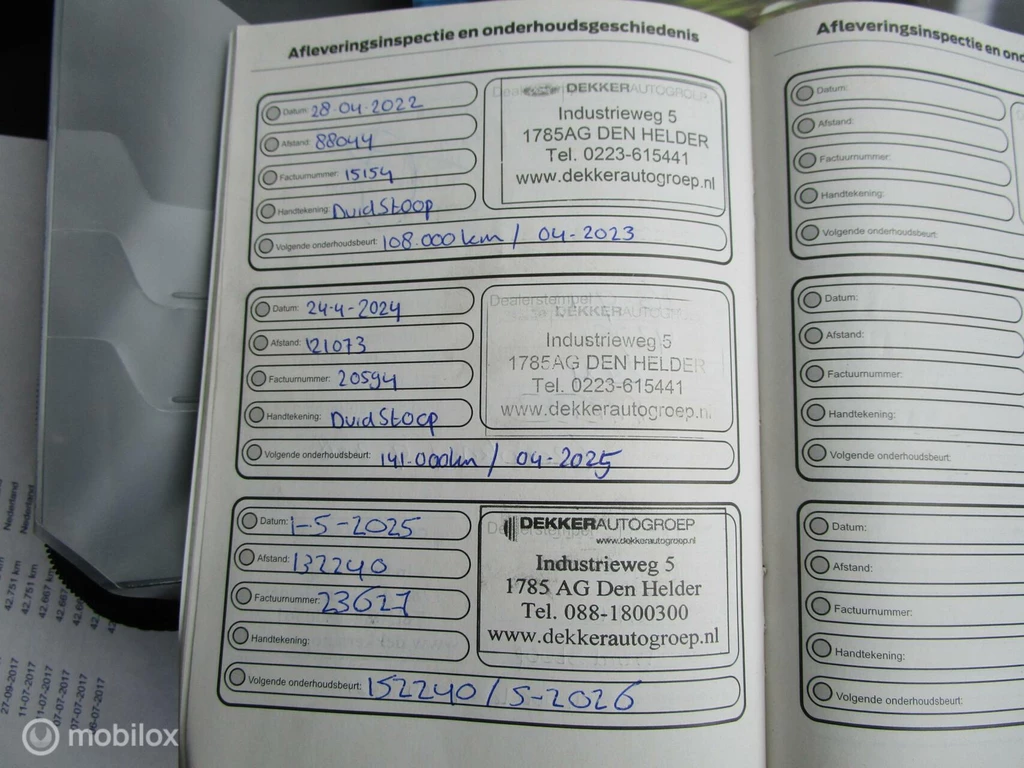 Afleveringsinspectie en onderhoudsgeschiedenis
Datum: 28-04-2022
Afstand: 88044
Factuurnummer: 15154
Handtekening: DuidStoop
Volgende onderhoudsbeurt: 108.000km / 04-2023
DEKKERAUTOGROEP
Industrieweg 5
1785AG DEN HELDER
Tel. 0223-615441
www.dekkerautogroep.nl
Datum: 24-4-2024
Afstand: 121073
Factuurnummer: 20594
Handtekening: DuidStoop
Volgende onderhoudsbeurt: 141.000km / 04-2025
Dealerstempel
DEKKERAUTO
Industrieweg 5
1785AG DEN HELDER
Tel. 0223-615441
www.dekkerautogroep.nl
Datum: 1-5-2025
Afstand: 132240
Factuurnummer: 23627
Handtekening:
Volgende onderhoudsbeurt: 152240 / 5-2026
DEKKERAUTOGROEP
www.dekkerautogroep.nl
Industrieweg 5
1785 AG Den Helder
Tel. 088-1800300
www.dekkerautogroep.nl
Afleveringsinspectie en
Datum:
Afstand:
Factuurnummer:
Handtekening:
Volgende onderhoudsbeurt:
Datum:
Afstand:
Factuurnummer:
Handtekening:
Volgende onderhoudsbeurt:
Datum:
Afstand:
Factuurnummer:
Handtekening:
Volgende onderhoudsbeurt:
Nederland
Nederland
42.751 km
42.751 km
42.667 km
42.667
27-09-2017
11-07-2017
07-07-2017
07-07-2017
mobilox